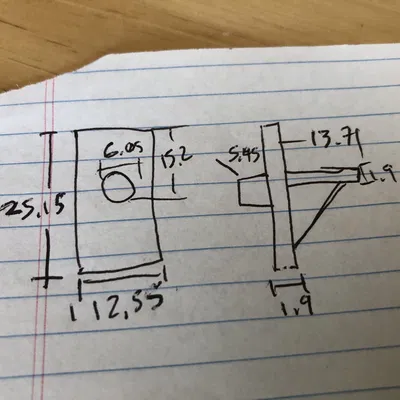 6.05
15.2
25.15
12.55
13.71
5.45
1.9
1.9